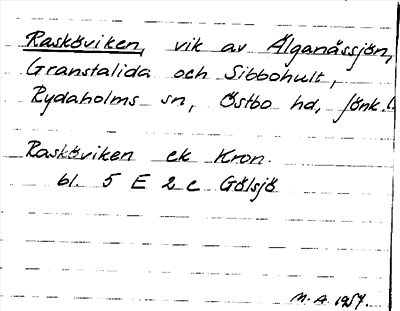 Rasköviken, vik av Älganässjön,
Granstalida och Sibbohult,
Rydaholms sn, Östbo hd, Jönk. l.
Rasköviken ek Kron.
bl. 5 E 2 c Gölsjö
M. A. 1957.